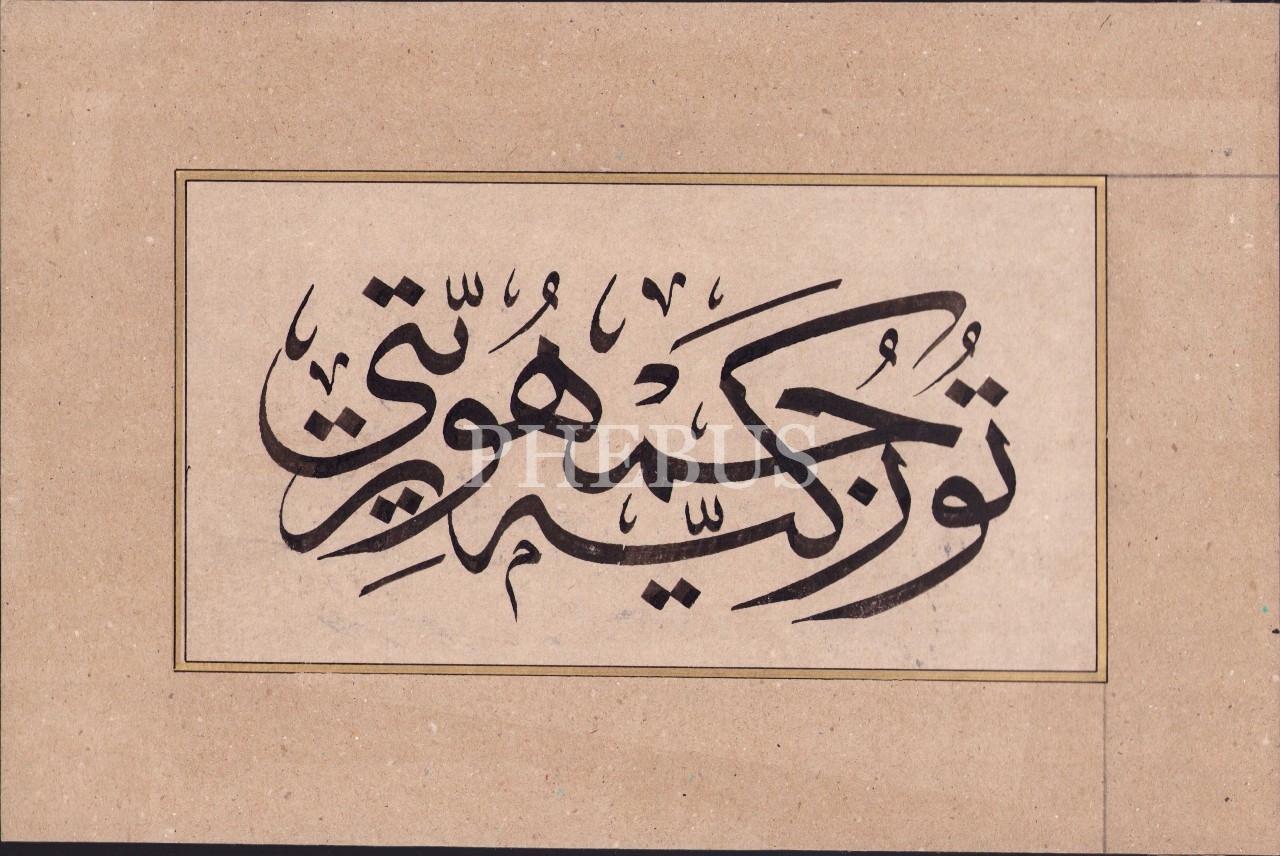 تُوركيَّه جُمهُورِيَّتي
PHEBUS